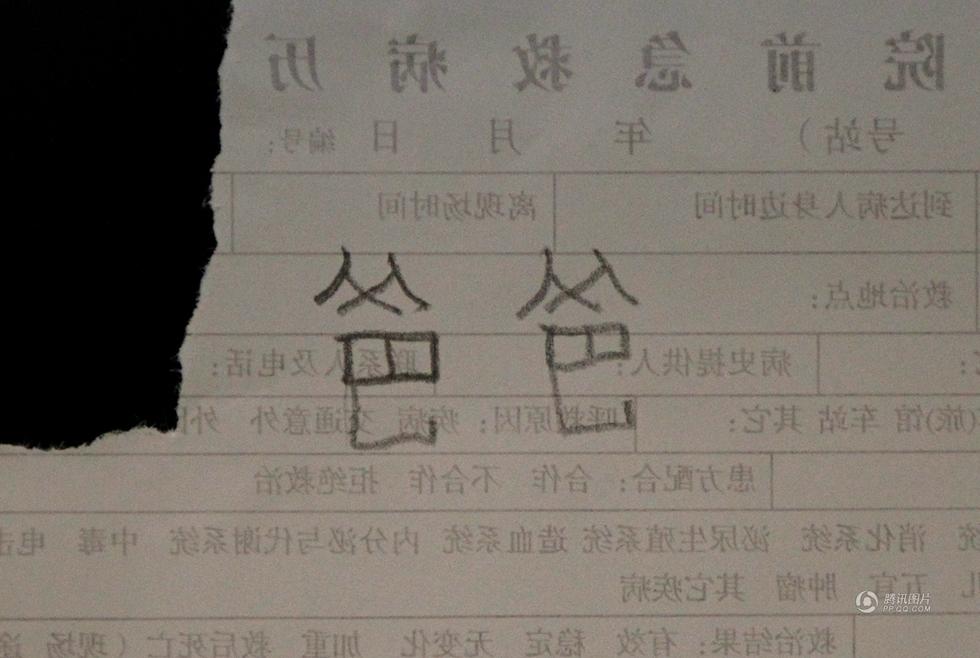 院前急救病历
号站） 年 月 日 编号：
到达病人身边时间 离现场时间
救治地点：
爸爸
病史提供人： 联系人及电话：
(旅)馆 车站 其它： 呼救原因：疾病 交通意外 外
患方配合：合作 不合作 拒绝救治
统 消化系统 泌尿生殖系统 造血系统 内分泌与代谢系统 中毒 电击
五官 肿瘤 其它疾病
救治结果：有效 稳定 无变化 加重 救后死亡（现场 途
腾讯图片
PP.QQ.COM